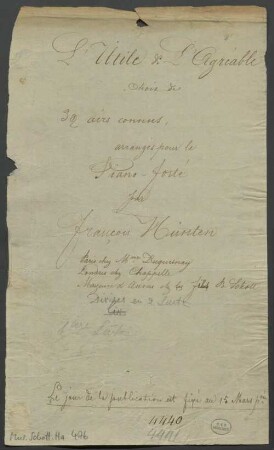 L'Utile & L'Agréable
choix de
32 airs connus,
arrangés pour le
Piano-forté
par
François Hünten
Paris chez Mme Duguernay
Londres chez Chappelle
Mayence et Anvers chez les fils de B. Schott
Divisés en 2 Suites
Suite
Le jour de la publication est fixé au 15 Mars
4440
4441
Mus. Schott. Ha 476